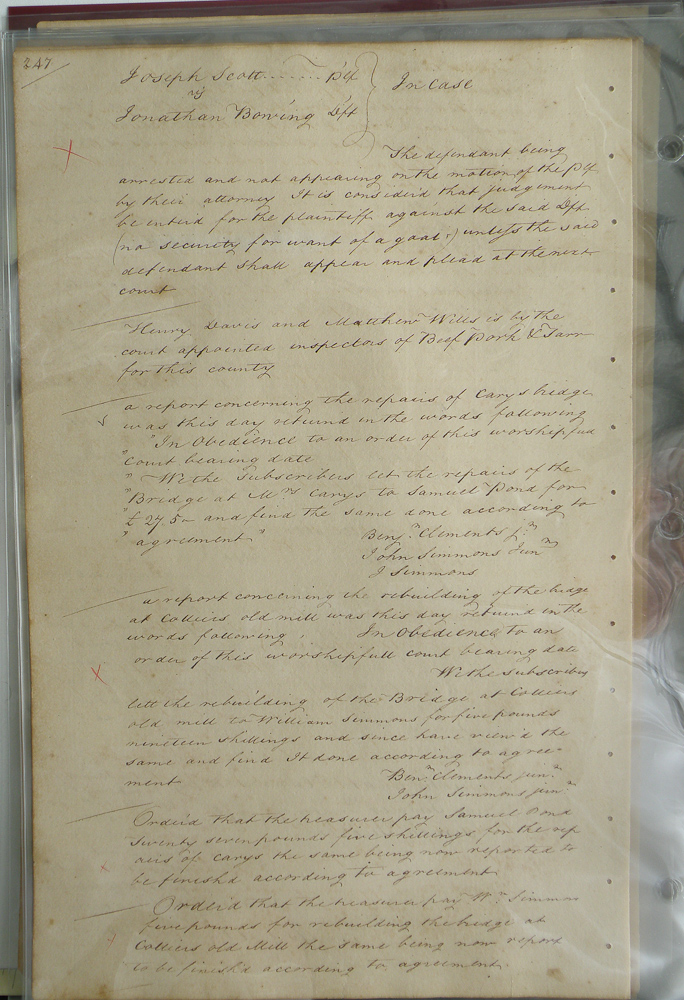 247
Joseph Scott ........ Ptf
vs
In case
Jonathan Bowing Dft
The defendant being
arrested and not appearing on the motion of the Ptf
by their attorney It is consider'd that judgement
be enterd for the plaintiff against the said Dft
(no security for want of a goal:) unless the said
defendant shall appear and plead at the next
court
Henry Davis and Matthew Wills is by the
court appointed inspectors of Beef Pork & Tarr
for this county
a report concerning the repairs of Carys bridge
was this day returnd in the words following
"In Obedience to an order of this worshipfull
"Court bearing date
" We the Subscribers let the repairs of the
"Bridge at Mrs Carys to Samuel Pond for
"£ 27,5 - and find the same done according to
" agreement"
Benjn Clements jr
John Simmons Junr
J Simmons
a report concerning the rebuilding of the bridge
at Colliers old mill was this day returnd in the
words following. In Obedience to an
order of this worshipfull court bearing date
We the subscribers
lett the rebuilding of the Bridge at Colliers
old mill to William Simmons for five pounds
nineteen shillings and since have view'd the
same and find It done according to agree-
ment
Benn Clements junr
John Simmons junr
Order'd that the treasurer pay Samuel Pond
Twenty seven pounds five shillings for the rep
airs of Carys the same being now reported to
be finish'd according to agreement
Order'd that the treasurer pay Wm Simmons
five pounds for rebuilding the bridge at
Colliers old Mill the same being now report
to be finish'd according to agreement.